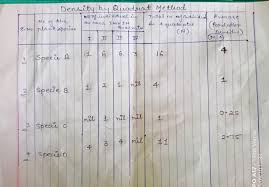 Density by Quadrat Method
S.no.
No. of the plant species
No. of individual in
I II III IV
Total no. of individual in 4 quadrats (N)
Remark (Population Density)
1 Species A 1 6 6 3 16 4
2 Species B 1 2 1 nil 4 1
3 Species C nil 1 nil 1 0.25
4 Species D 4 3 4 nil 11 2.75